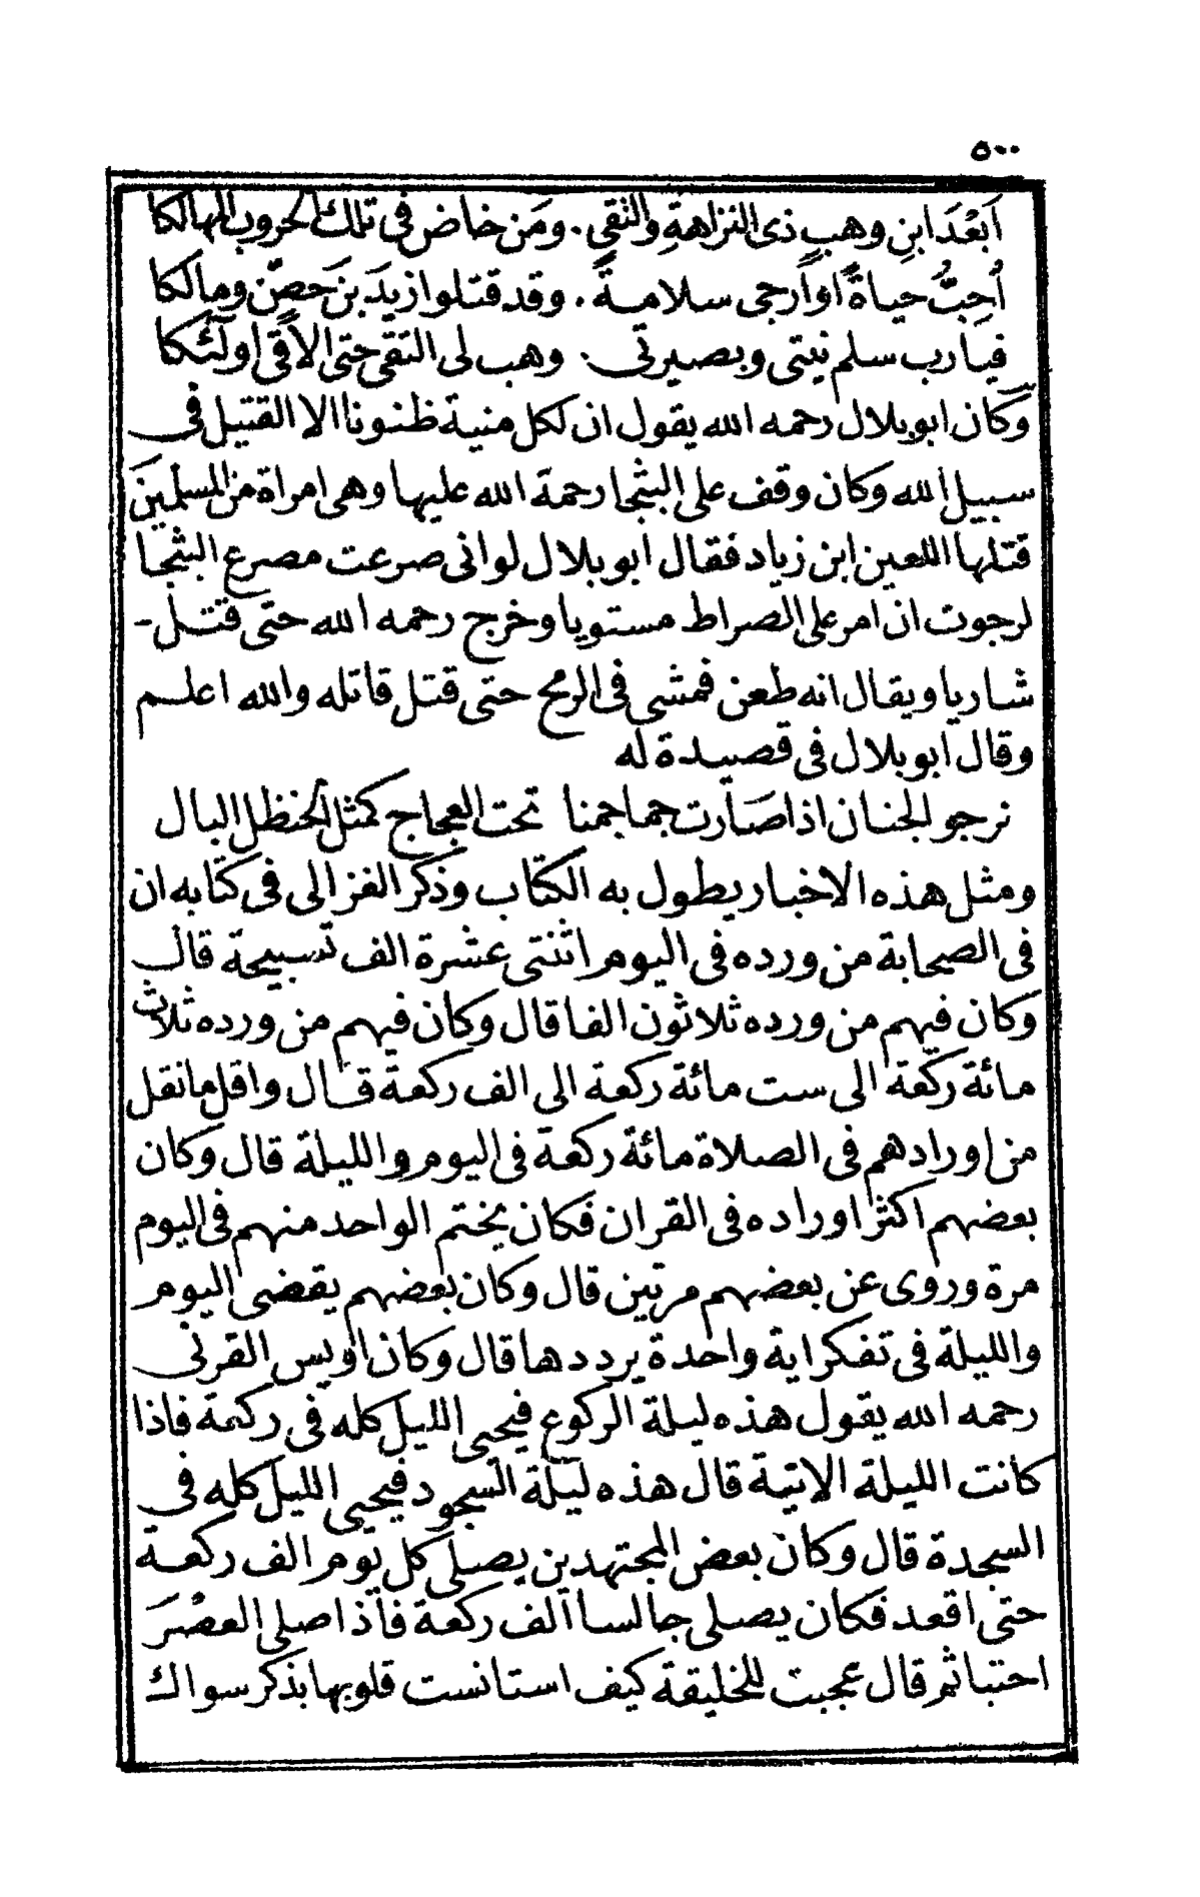 ٥٠٠
اَبَعْدَ ابنِ وهبٍ ذى النزاهةِ والتقى . ومَن خاض فى تلك الحروب المهالكا
اُحِبُّ حياةً او اُرجى سلامةً . وقد قتلوا زيدَ بنَ حصن ومالكا
فيا رب سلم نيتى وبصيرتى . وهب لى التقى حتى الاقى اولئكا
وكان ابو بلال رحمه الله يقول ان لكل منية ظنونا الا القتيل فى
سبيل الله وكان وقف على البثجا رحمة الله عليها وهى امراة من المسلمين
قتلها اللعين ابن زياد فقال ابو بلال لو انى صرعت مصرع البثجا
لرجوت ان امر على الصراط مستويا وخرج رحمه الله حتى قتل -
شاريا ويقال انه طعن فمشى فى الرمح حتى قتل قاتله والله اعلم
وقال ابو بلال فى قصيدة له
نرجو الجنان اذا صَارت جماجمنا تحت العجاج كمثل الحنظل البال
ومثل هذه الاخبار يطول به الكتاب وذكر الغزالى فى كتابه ان
فى الصحابة من ورده فى اليوم اثنتى عشرة الف تسبيحة قال
وكان فيهم من ورده ثلاثون الفا قال وكان فيهم من ورده ثلاث
مائة ركعة الى ست مائة ركعة الى الف ركعة قال واقل ما نقل
من اورادهم فى الصلاة مائة ركعة فى اليوم والليلة قال وكان
بعضهم اكثر اوراده فى القران فكان يختم الواحد منهم فى اليوم
مرة وروى عن بعضهم مرتين قال وكان بعضهم يقضى اليوم
والليلة فى تفكر اية واحدة يرددها قال وكان اويس القرنى
رحمه الله يقول هذه ليلة الركوع فيحيى الليل كله فى ركعة فاذا
كانت الليلة الاتية قال هذه ليلة السجود فيحيى الليل كله فى
السجدة قال وكان بعض المجتهدين يصلى كل يوم الف ركعة
حتى اقعد فكان يصلى جالسا الف ركعة فاذا صلى العصْرَ
احتبا ثم قال عجبت للخليقة كيف استانست قلوبها بذكر سواك